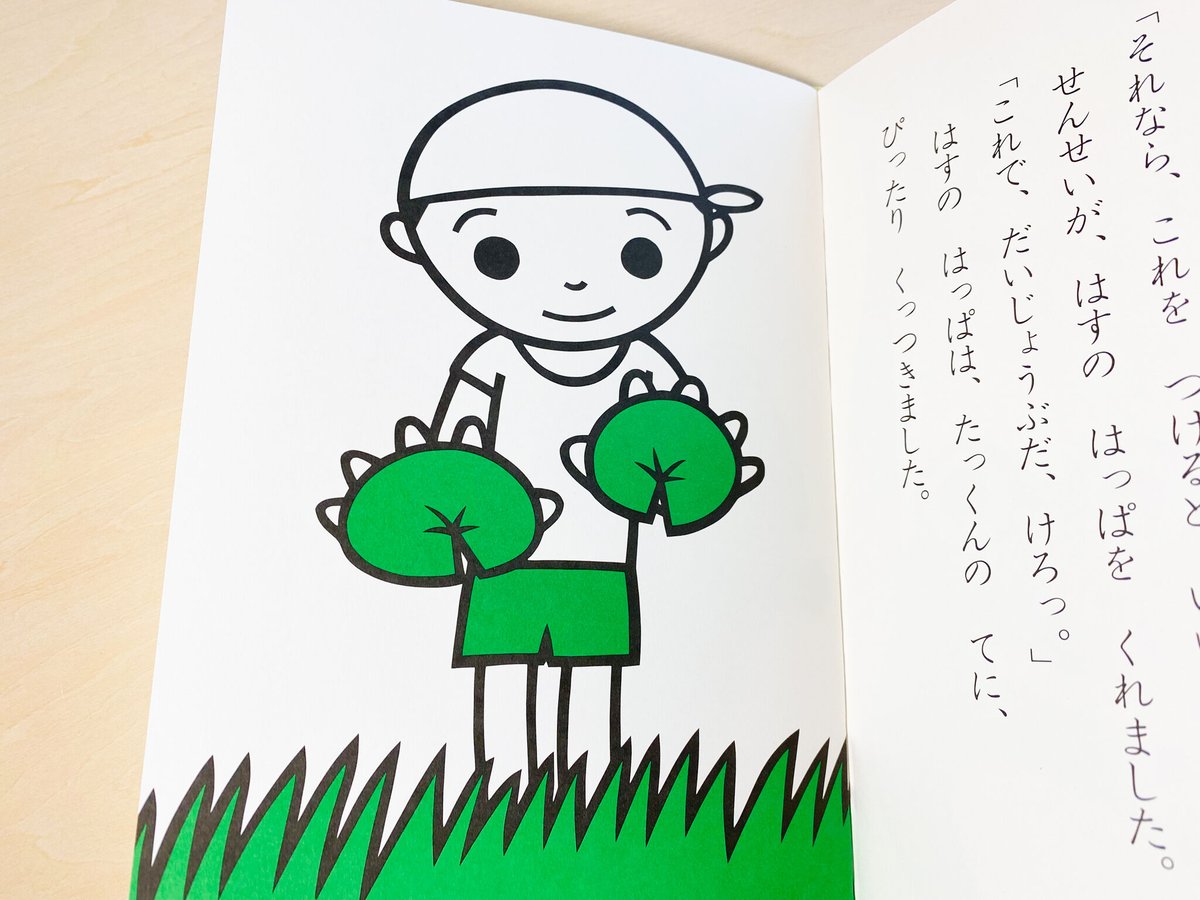 「それなら、これを つけると いい
せんせいが、はすの はっぱを くれました。
「これで、だいじょうぶだ、けろっ。」
はすの はっぱは、たっくんの てに、
ぴったり くっつきました。